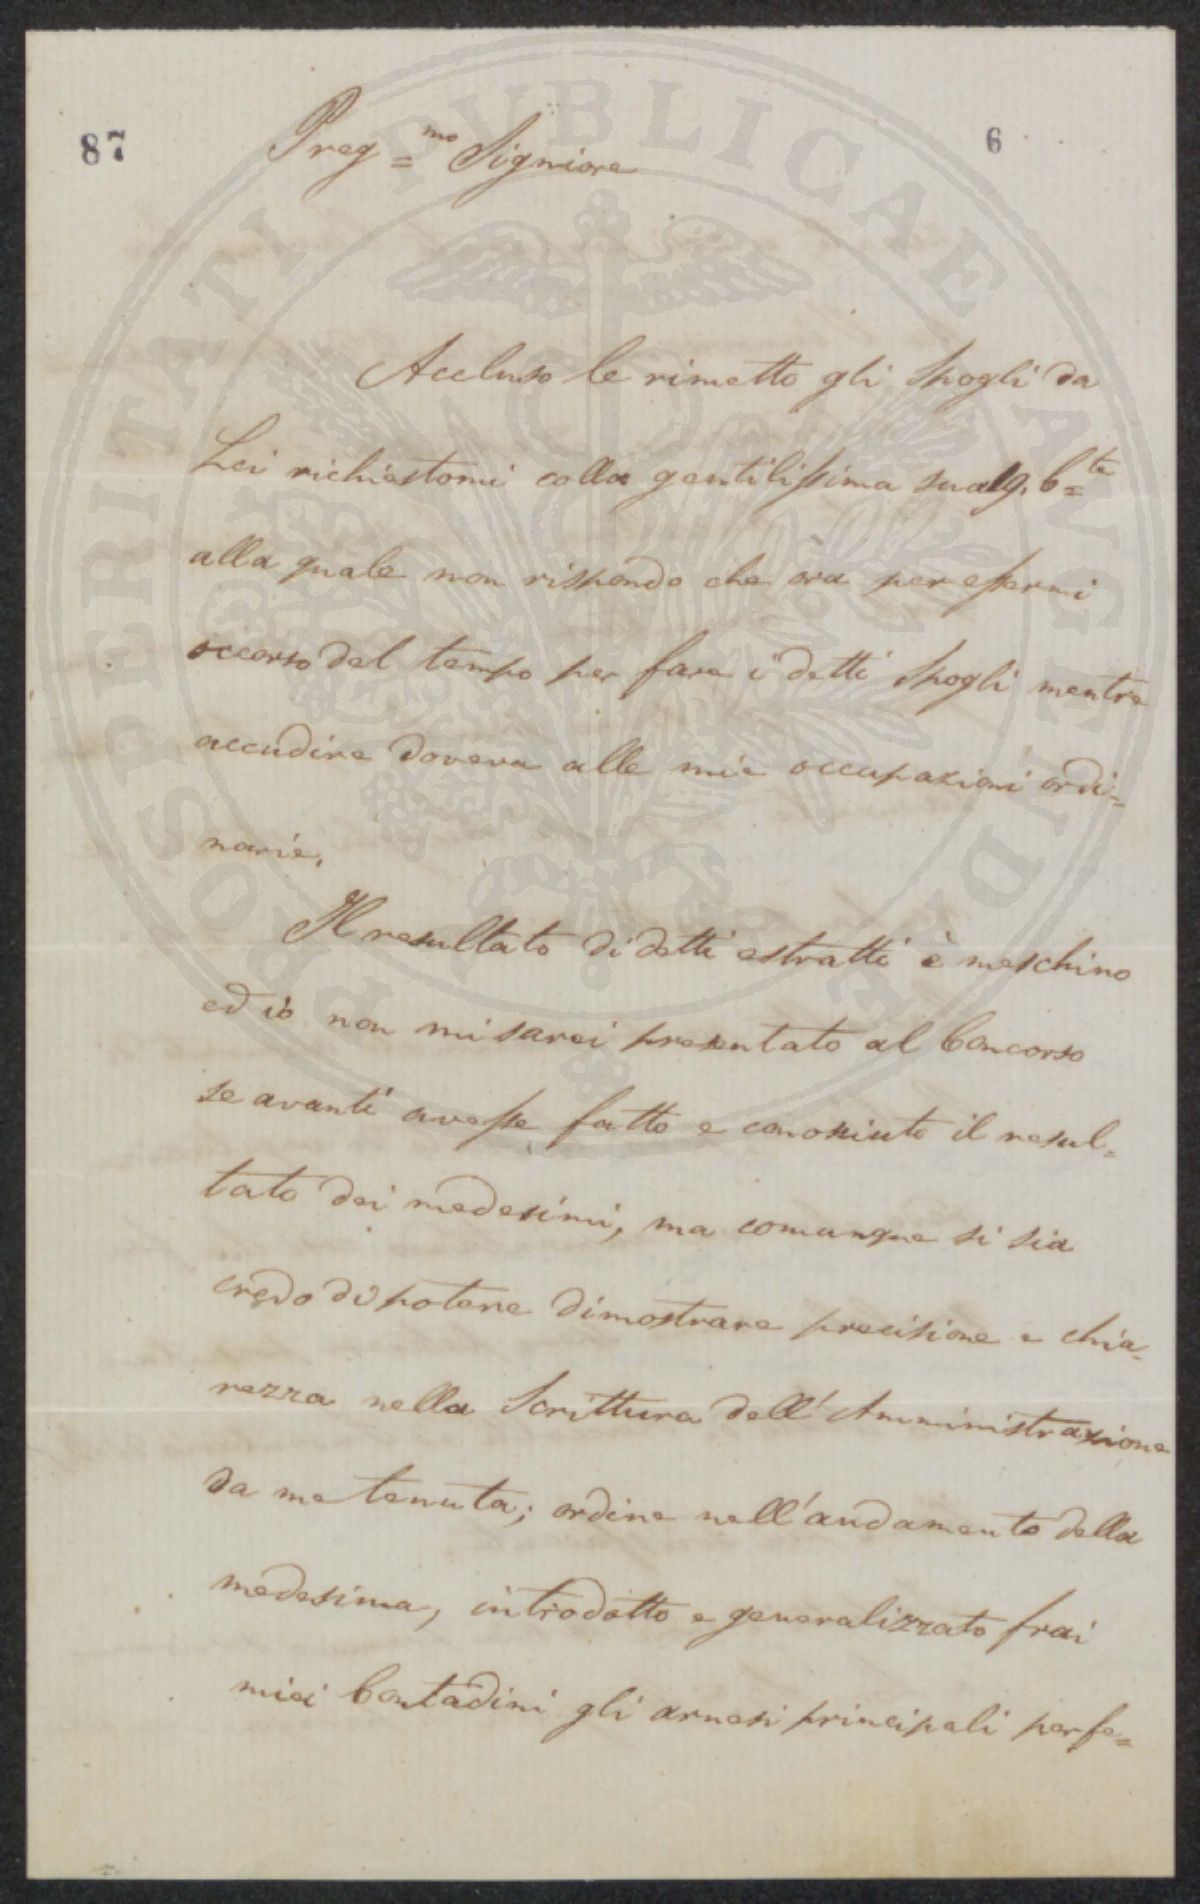 87
6
Preg=mo Signiore
Accluso le rimetto gli Spogli da
Lei richiestomi colla gentilissima sua 19. C=te
alla quale non rispondo che ora per essermi
occorso del tempo per fare i detti Spogli mentre
accudire doveva alle mie occupazioni ordi=
narie.
Il resultato di detti estratti è meschino
ed io non mi sarei presentato al Concorso
se avanti avesse fatto e conosciuto il resul=
tato dei medesimi, ma comunque si sia
credo di potere dimostrare precisione e chia=
rezza nella Scrittura dell' Amministrazione
da me tenuta; ordine nell'andamento della
medesima, introdotto e generalizzato frai
miei Contadini gli arnesi principali perfe=
PROSPERITATI PUBLICAE AUGENDAE